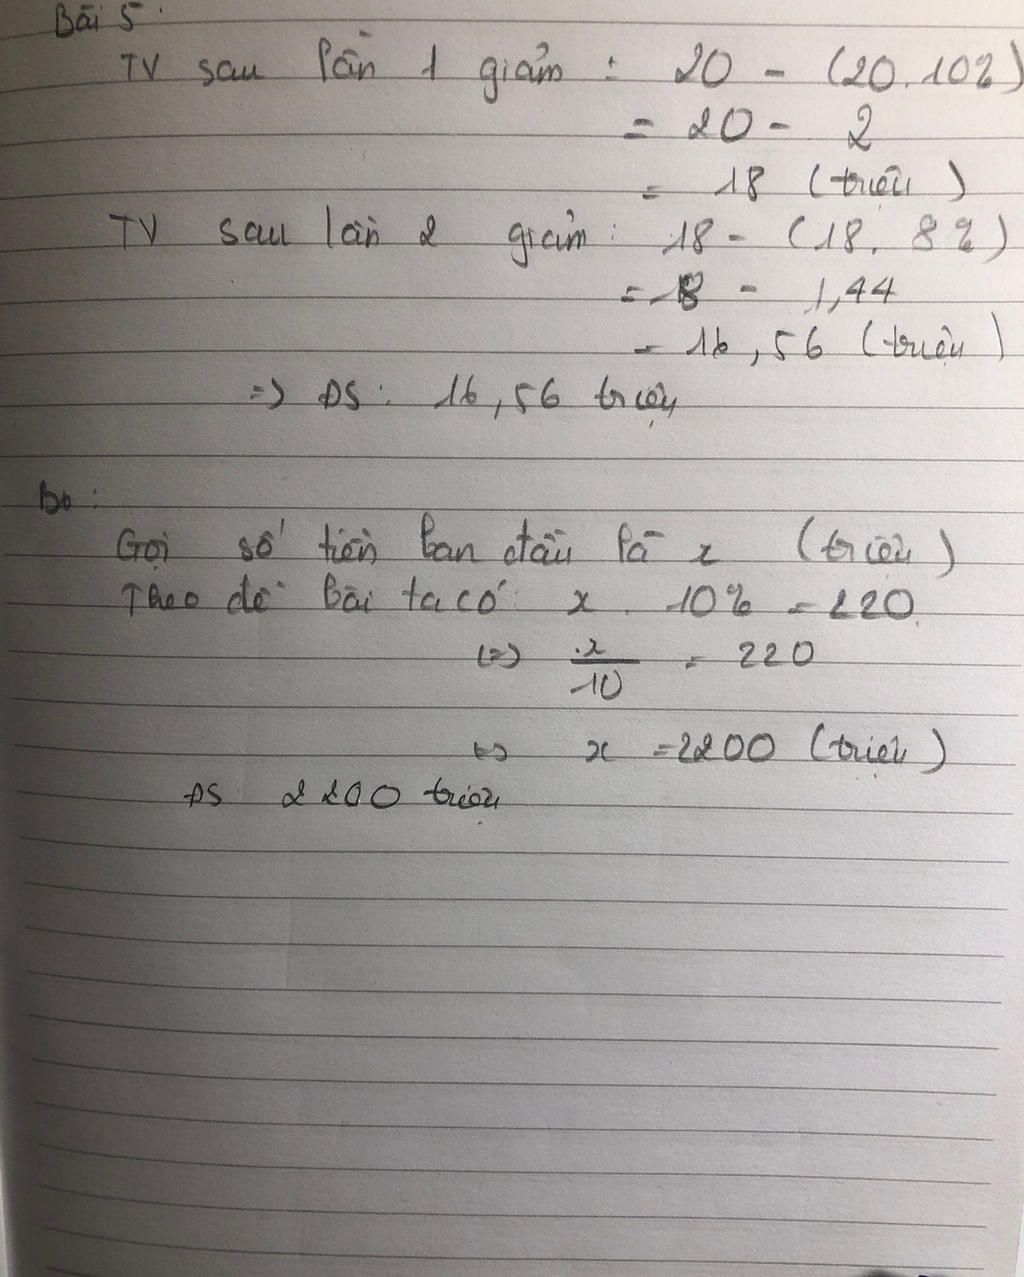 Bài 5:
TV sau lần 1 giảm : 20 - (20.10%)
= 20 - 2
= 18 (triệu)
TV sau lần 2 giảm : 18 - (18. 8%)
= 18 - 1,44
= 16,56 (triệu)
=> ĐS: 16,56 triệu
B6:
Gọi số tiền ban đầu là x (triệu)
Theo đề bài ta có: x . 10% = 220
<=> x/10 = 220
<=> x = 2200 (triệu)
ĐS 2200 triệu